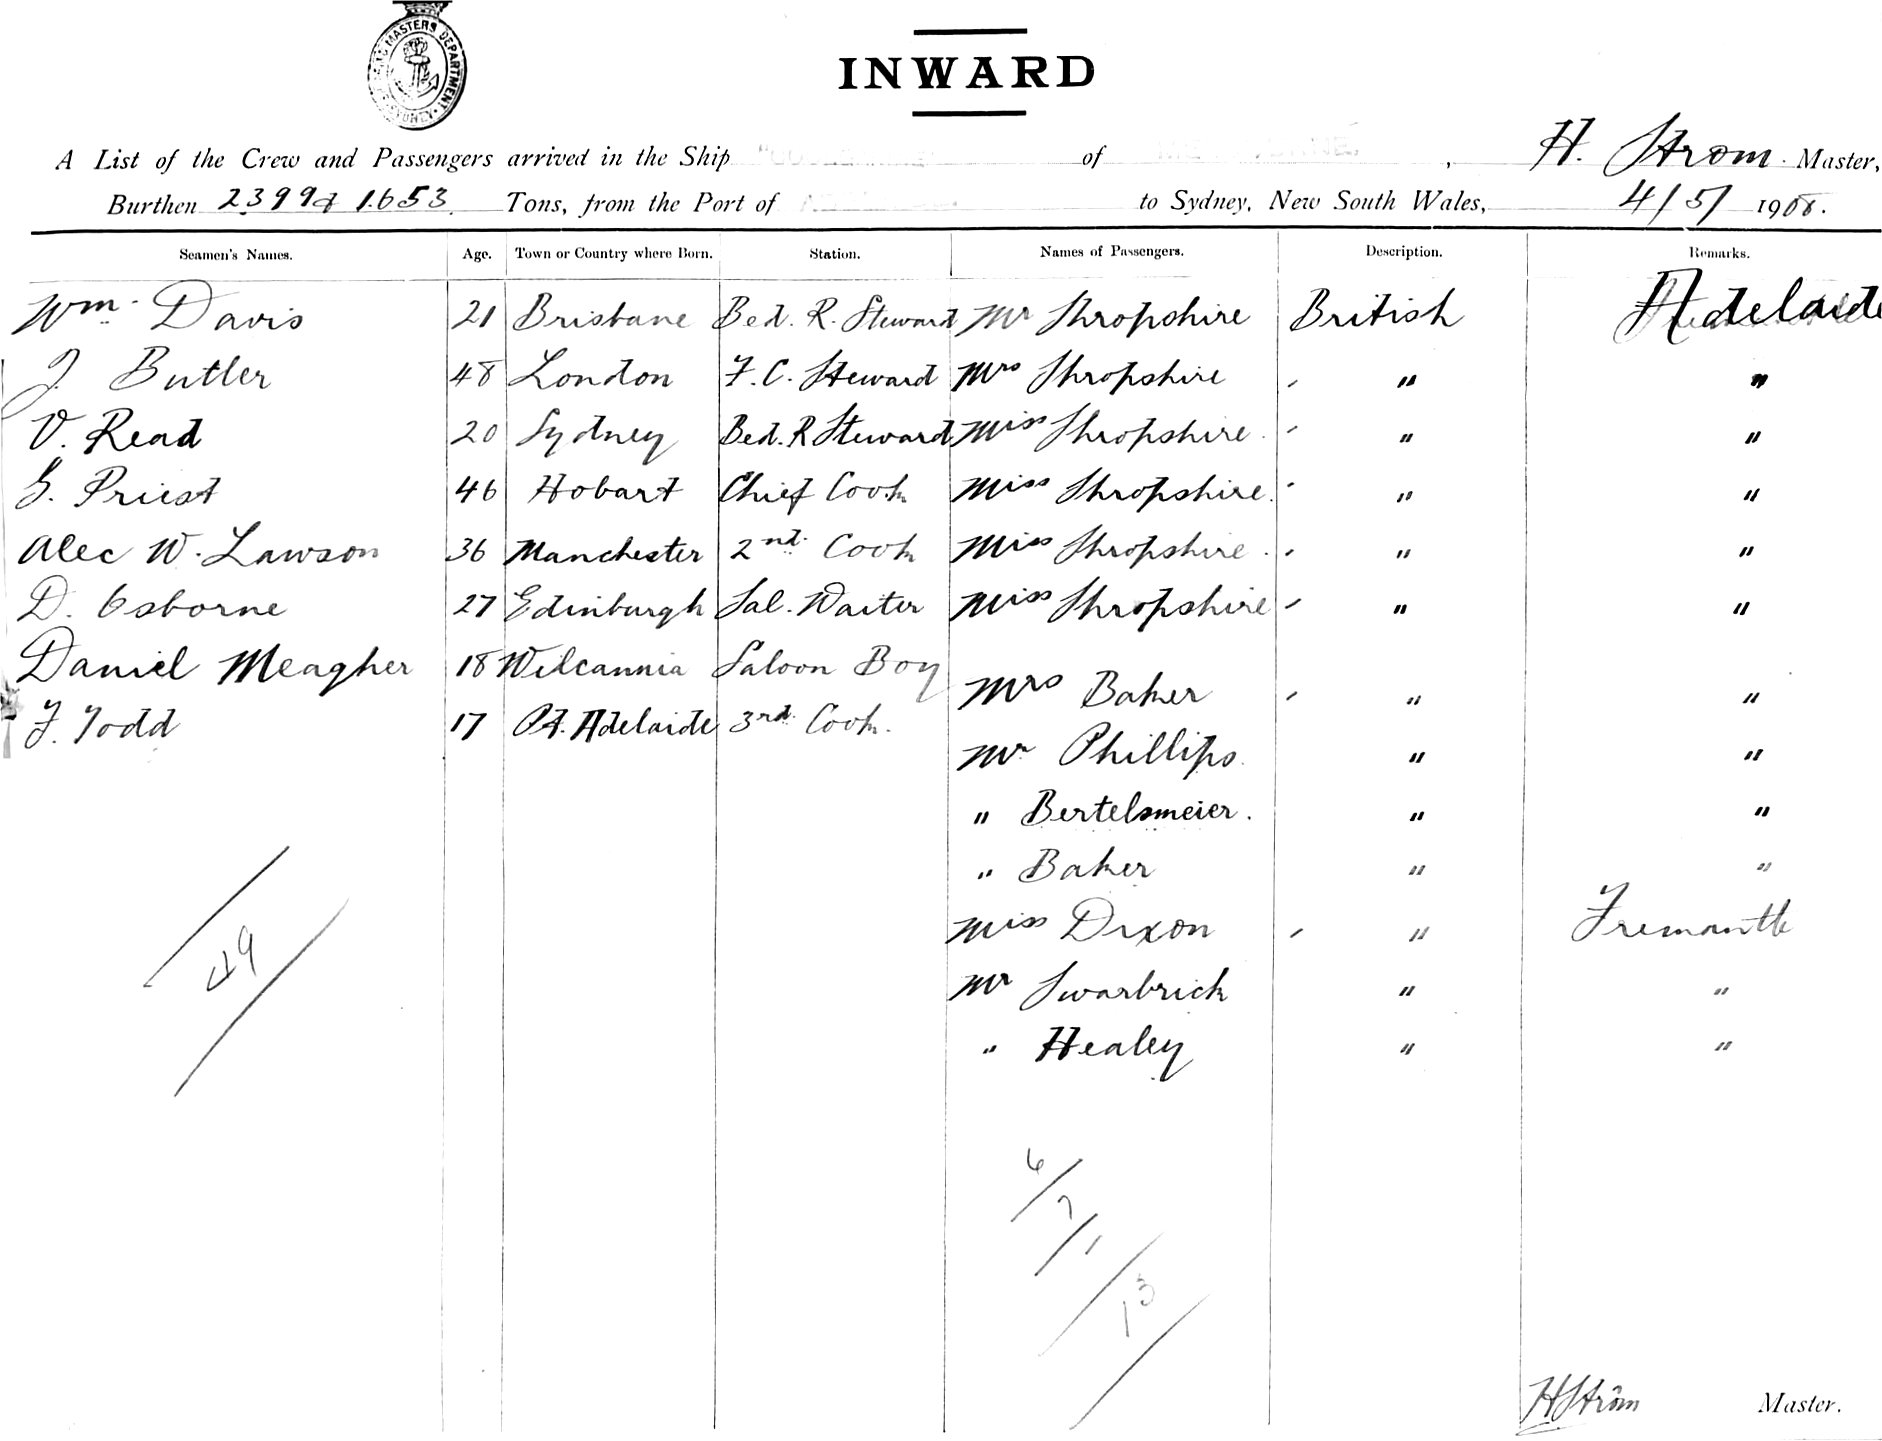 MASTERS DEPARTMENT
INWARD
A List of the Crew and Passengers arrived in the Ship of , H. Strom. Master,
Burthen 2399 & 1653 Tons, from the Port of to Sydney, New South Wales, 4/5/ 1908.
Seamen's Names. Age. Town or Country where Born. Station. Names of Passengers. Description. Remarks.
Wm. Davis 21 Brisbane Bed. R. Steward Mr Shropshire British Adelaide
J. Butler 48 London F. C. Steward Mrs Shropshire " "
V. Read 20 Sydney Bed. R Steward Miss Shropshire " "
G. Priest 46 Hobart Chief Cook Miss Shropshire " "
Alec W. Lawson 36 Manchester 2nd. Cook Miss Shropshire " "
D. Osborne 27 Edinburgh Sal. Waiter Miss Shropshire " "
Daniel Meagher 18 Wilcannia Saloon Boy
Mrs Baker " "
F. Todd 17 Pt. Adelaide 3rd. Cook.
Mr Phillips " "
" Bertelsmeier. " "
" Baker " "
Miss Dixon " Fremantle
49
Mr Swarbrick " "
" Healey " "
6/7/1
13
HStrom Master.